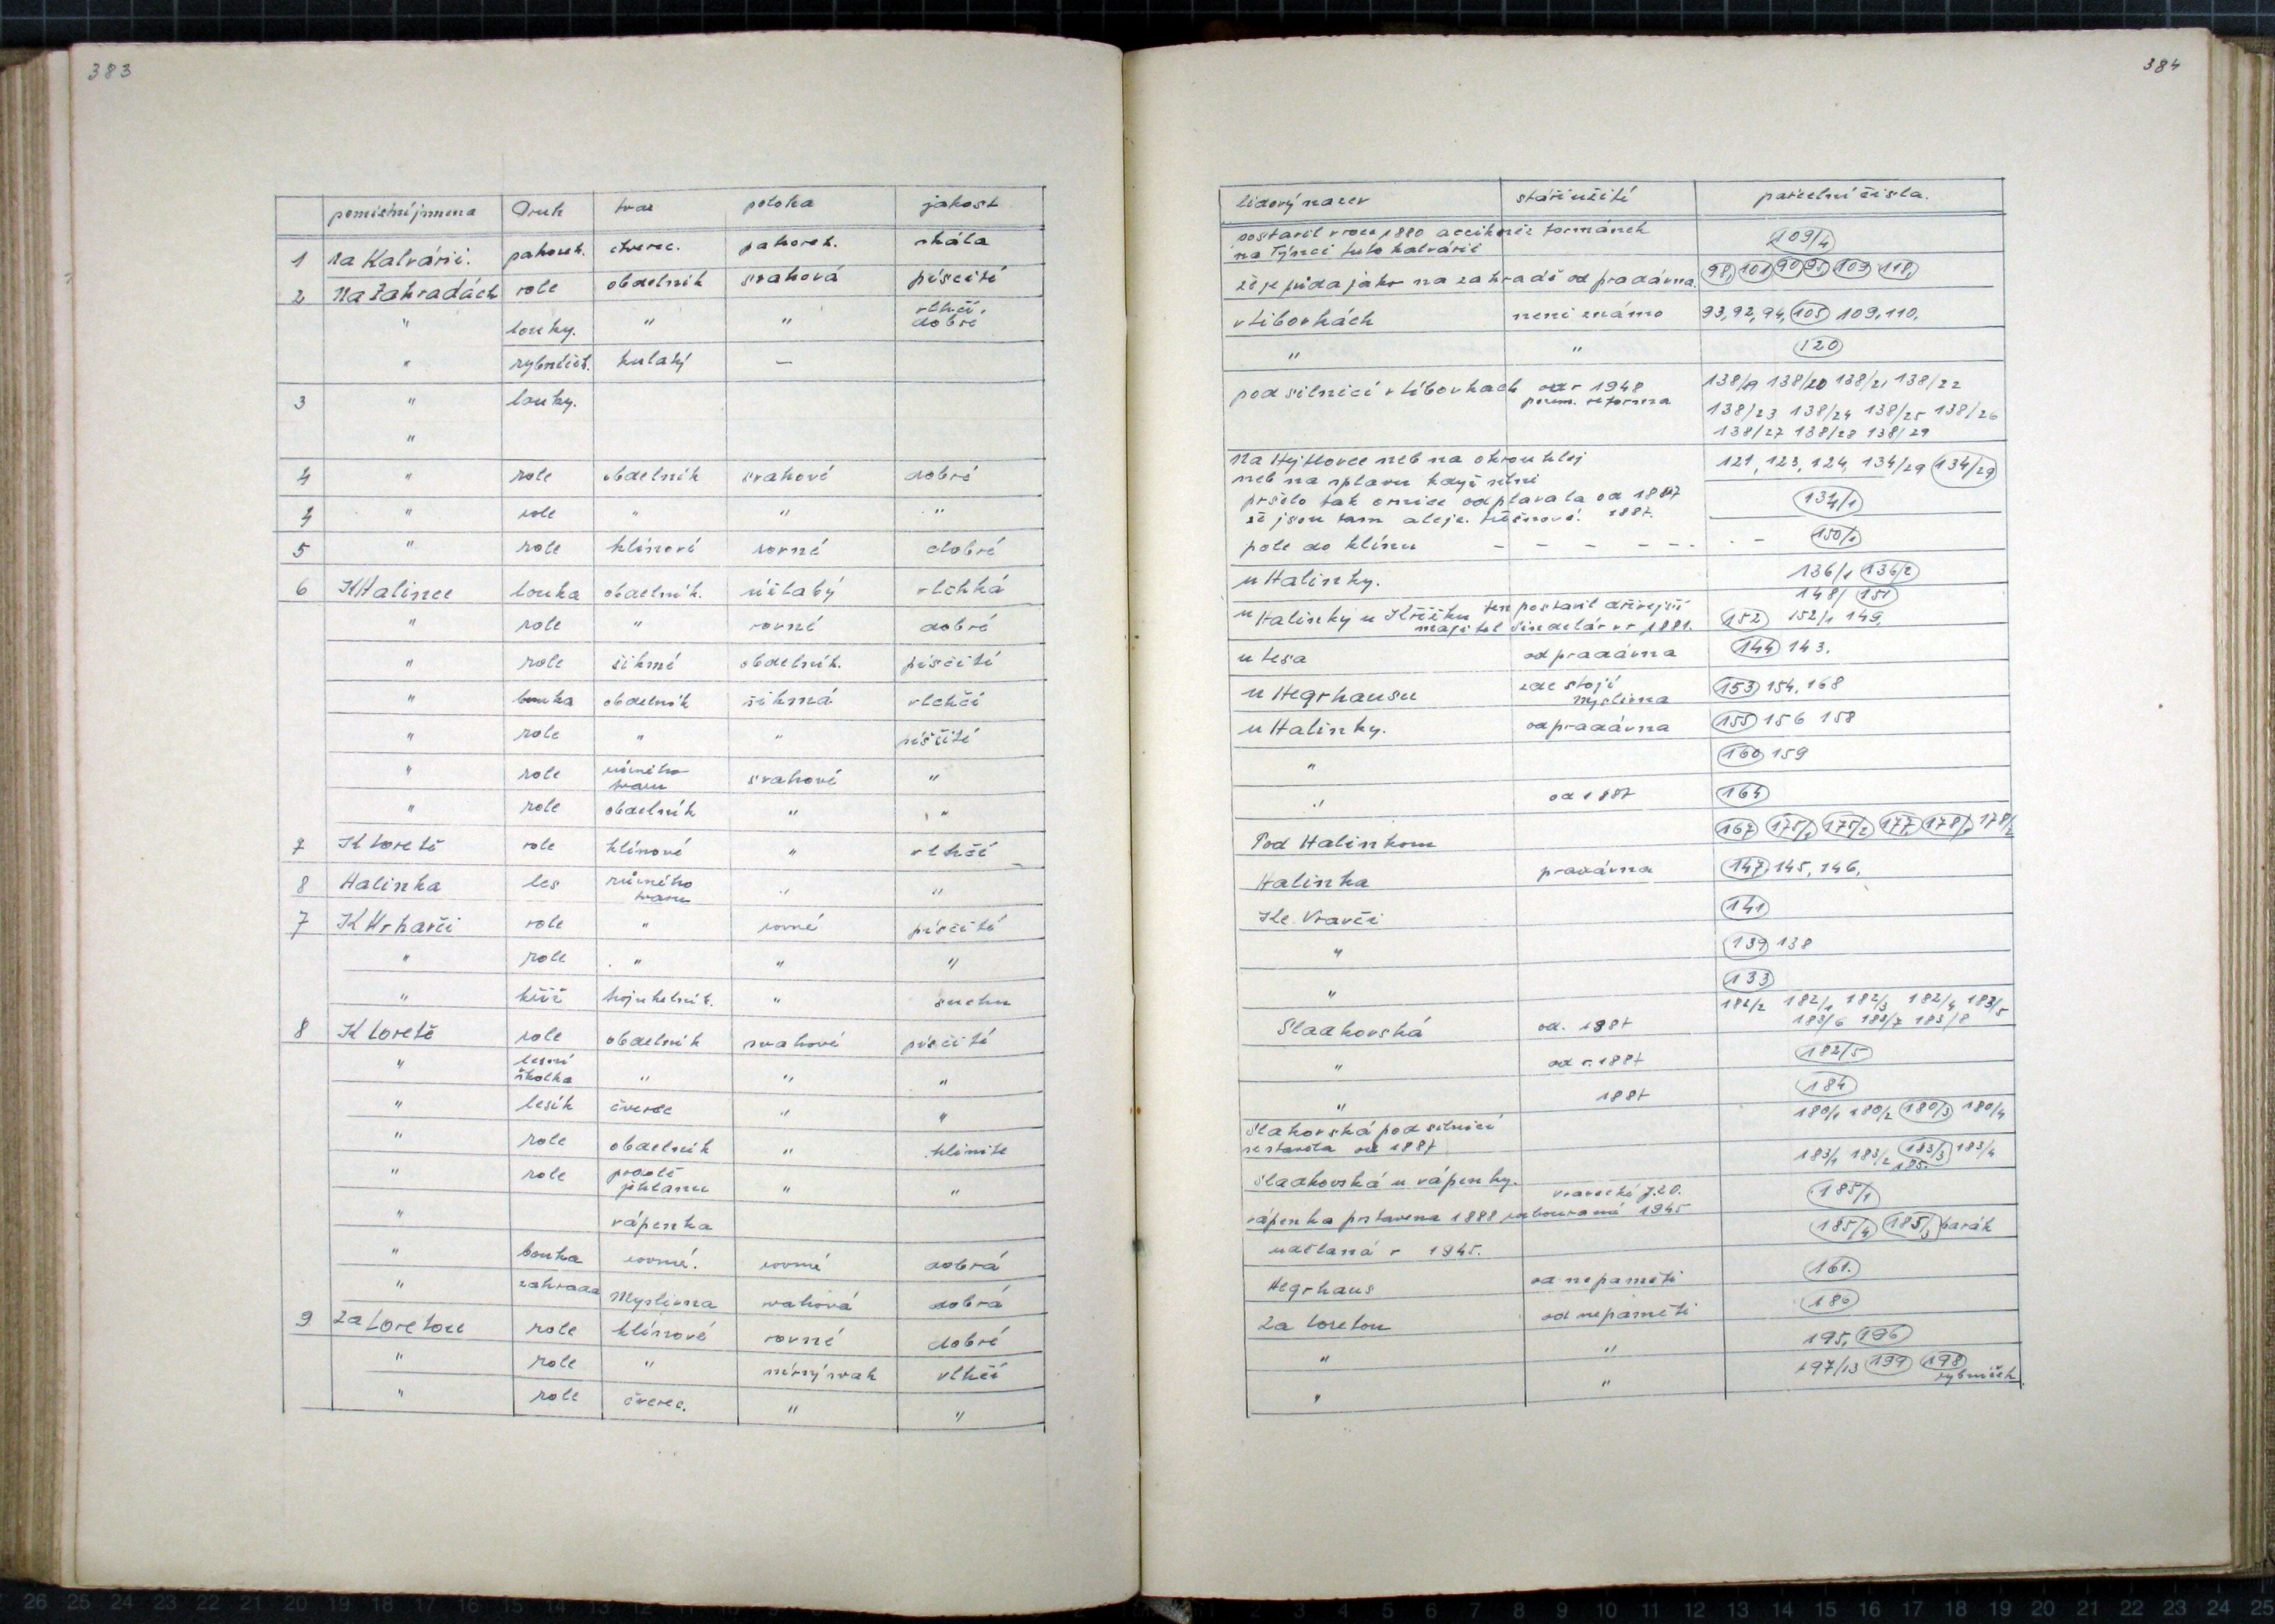 383
pomístní jmena Druh tvar poloha jakost
1 na Kalvárii. pahorek. čtverec. pahorek. skála
2 Na Zahradách role obdelník svahová písčité
" louky. " " vlhčí, dobré
" rybníček. kulatý –
3 " louky.
"
4 " role obdelník svahové dobré
4 " role " " "
5 " role klínové rovné dobré
6 K Halince louka obdelník. úžlabý vlhká
" role " rovné dobré
" role šikmé obdelník. písčité
" louka obdelník šikmá vlhčí
" role " " písčité
" role různého tvaru svahové "
" role obdelník " "
7 K Loretě role klínové " vlhčí
8 Halinka les různého tvaru " "
7 K Vrhavči role " rovné písčité
" role " " "
" kříž trojuhelník. " suchu
8 K Loretě role obdelník svahové písčité
" lesní školka " " "
" lesík čverec " "
" role obdelník " hlinite
" role podle jehlanu " "
" vápenka
" louka rovné. rovné dobrá
" zahrada Myslivna svahová dobrá
9 Za Loretou role klínové rovné dobré
" role " mírný svah vlhčí
" role čverec. " "
384
lidový nazev stáří užití parcelní čísla.
postavil v roce 1880 formánek
na Týnci tuto kalvárii 109/4
že je půda jako na zahradě od pradávna. 98, 101 90 95 109 118,
v libovkách neni známo 93, 92, 94, 105 109, 110,
" " 120
pod silnicí v libovkach od r 1948 138/19 138/20 138/21 138/22
pozem. reforma 138/23 138/24 138/25 138/26
138/27 138/28 138/29
Na Hejtlovce neb na okrouhlej 121, 123, 124, 134/29 134/29
neb na splavu když silni
pršelo tak ornice odplavala od 1887 134/1
že jsou tam aleje. třešnové. 1887.
pole do klínu – – – – – – – – 150/1
u Halinky. 136/1 136/2
148/ 151
u Halinky u Křížku ten postavil dřívejší 152 152/1 149,
majitel Šindelár v r 1881.
u lesa od pradávna 144 143.
u Hegrhausu zde stojí myslivna 153 154, 168
u Halinky. od pradávna 155 156 158
" 160 159
" od 1887 164
Pod Halinkou 167 175/1 175/2 177, 178/1 178/2
Halinka pradávna 147 145, 146,
Ke Vravči 141
" 139 138
" 133
182/2 182/1 182/3 182/4 183/5
Sladkovská od. 1887 183/6 183/7 183/8
" od r. 1887 182/5
" 1887 184
180/1 180/2 180/3 180/4
Slakovská pod silnicí
se stavěla od 1887 183/1 183/2 183/3 183/4
185.
Sladkovská u vápenky.
J.Z.D. 185/1
vápenka postavena 1888 zbouraná 1945
udělaná r 1945. 185/4 185/3 barák
Hegrhaus od nepaměti 161.
Za loretou od nepaměti 186
" " 195, 196
" " 197/13 199 198
rybníček